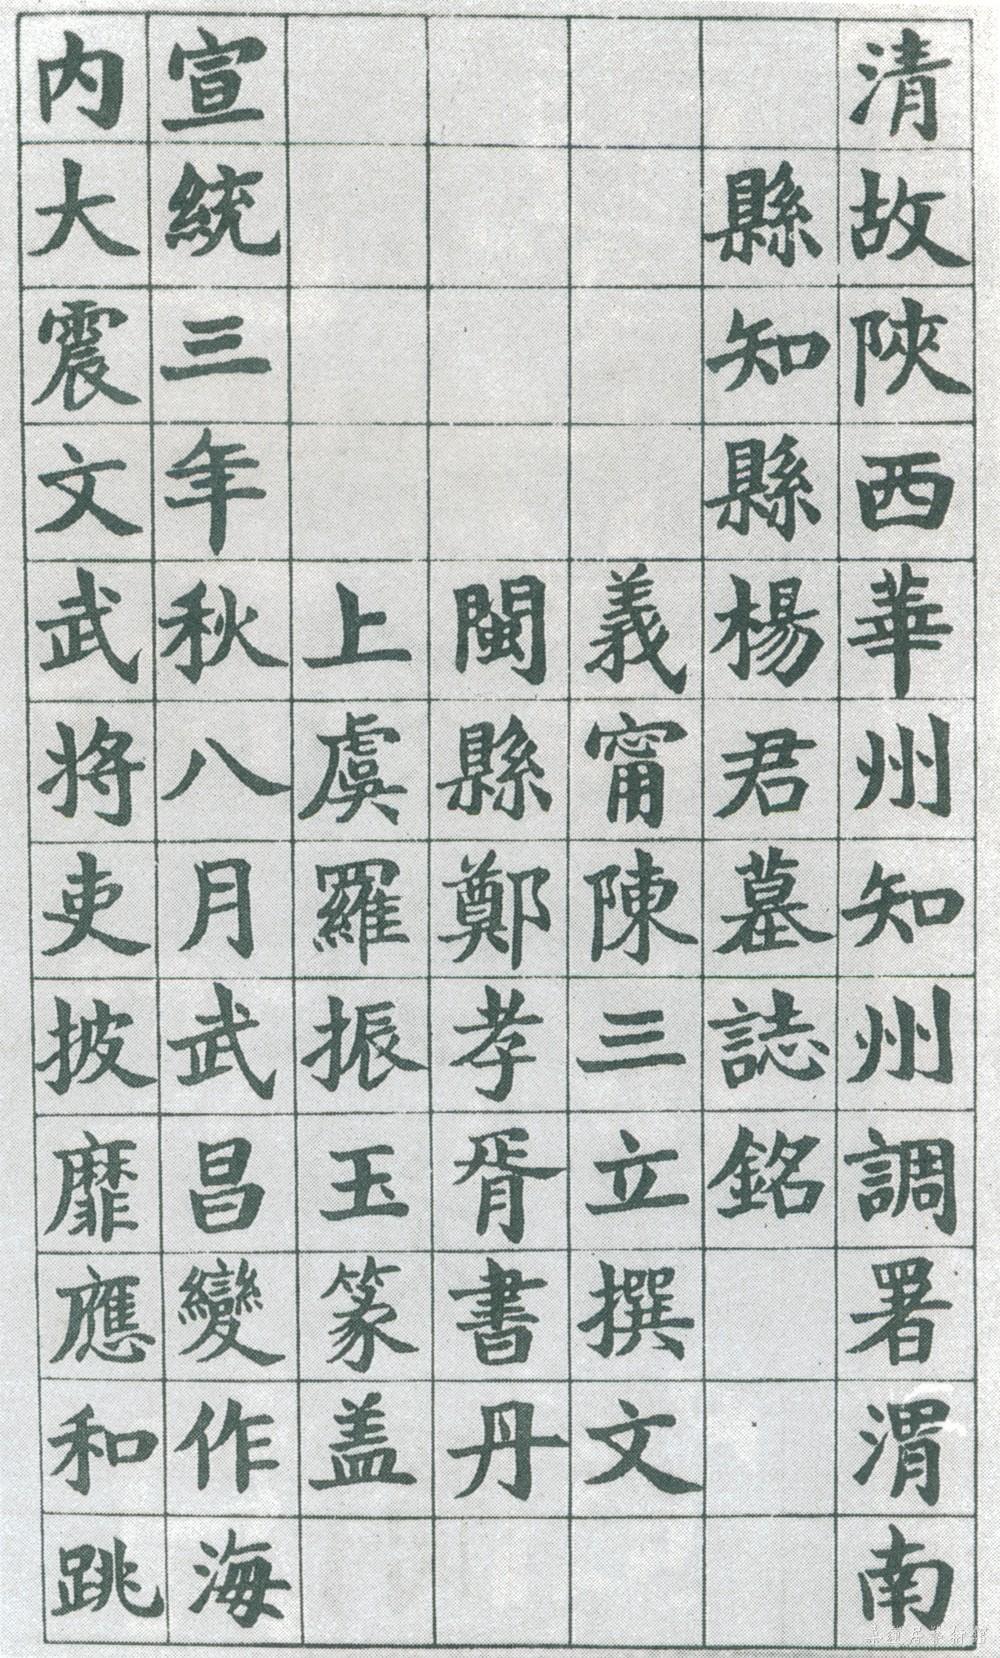 清故陝西華州知州調署渭南
縣知縣楊君墓誌銘
義甯陳三立撰文
閩縣鄭孝胥書丹
上虞羅振玉篆盖
宣統三年秋八月武昌變作海
内大震文武將吏披靡應和跳